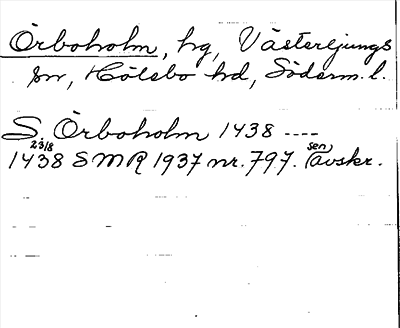 Örboholm, hg, Västerljungs
sn, Hölebo hd, Söderm. l.
S. Örboholm 1438 ----
1438 23/8 SMR 1937 nr. 797. (sen) avskr.